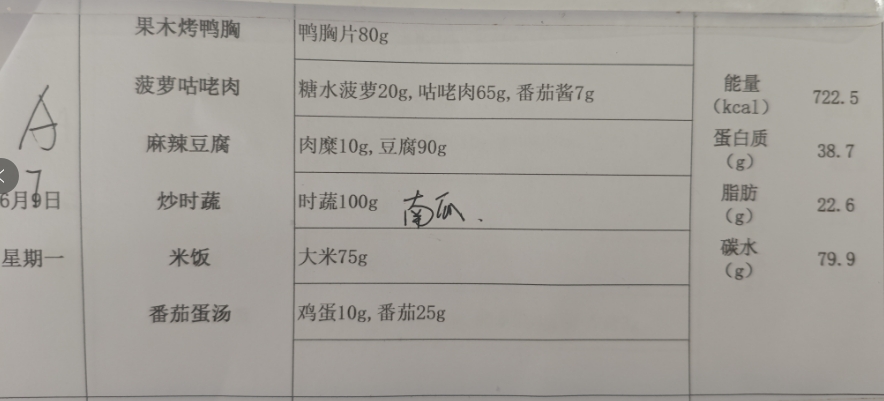 果木烤鸭胸 鸭胸片80g
菠萝咕咾肉 糖水菠萝20g,咕咾肉65g,番茄酱7g
能量（kcal） 722.5
A
麻辣豆腐 肉糜10g,豆腐90g
蛋白质（g） 38.7
6月9日 炒时蔬 时蔬100g 南瓜.
脂肪（g） 22.6
星期一 米饭 大米75g
碳水（g） 79.9
番茄蛋汤 鸡蛋10g,番茄25g